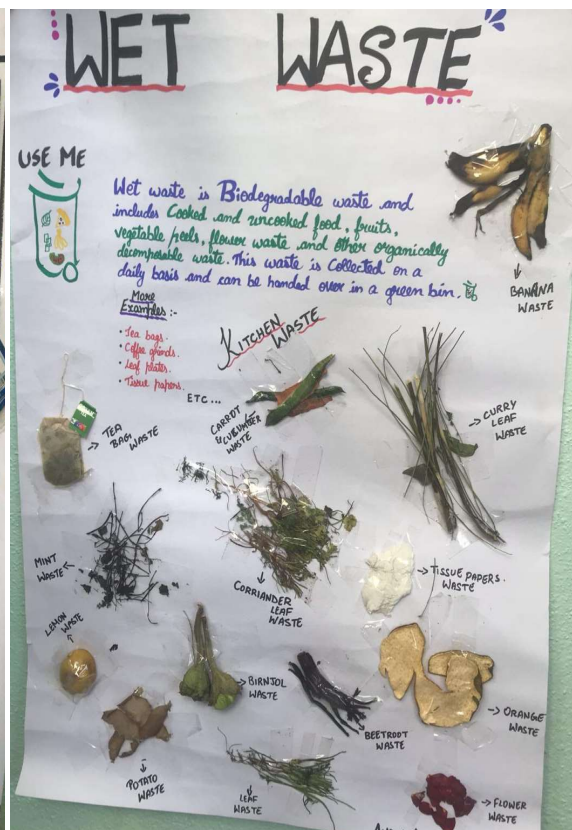 WET WASTE
USE ME
Wet waste is Biodegradable waste and
includes Cooked and uncooked food, fruits,
vegetable peels, flower waste and other organically
decomposable waste. This waste is Collected on a
daily basis and can be handed over in a green bin.
BANANA
WASTE
More
Examples :-
• Tea bags.
• Coffee grinds.
• Leaf plates.
• Tissue papers.
ETC...
KITCHEN WASTE
TEA
BAG WASTE
CARROT
& CUCUMBER
WASTE
CURRY
LEAF
WASTE
MINT
WASTE
CORRIANDER
LEAF
WASTE
TISSUE PAPERS.
WASTE
LEMON
WASTE
BIRNJOL
WASTE
BEETROOT
WASTE
ORANGE
WASTE
POTATO
WASTE
LEAF
WASTE
FLOWER
WASTE